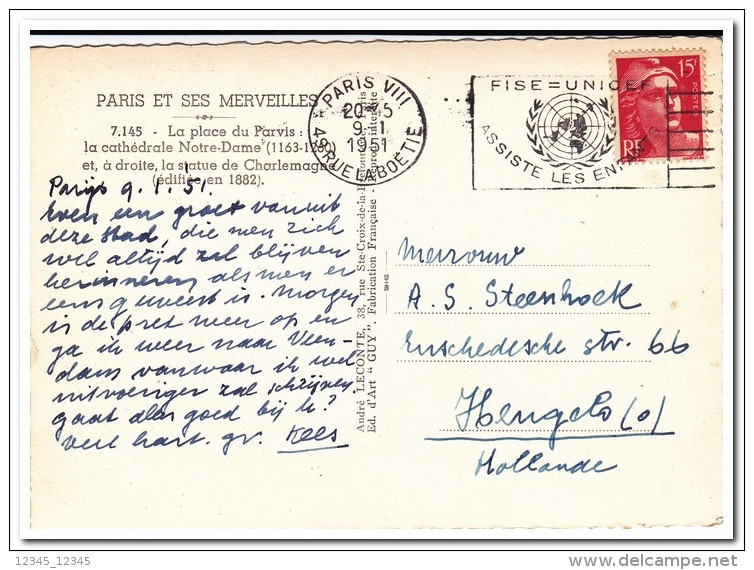 PARIS ET SES MERVEILLES
7.145 - La place du Parvis :
la cathédrale Notre-Dame (1163-1260)
et, à droite, la statue de Charlemagne
(édifiée en 1882).
Parijs 9.1.'51.
Even een groet vanuit
deze stad, die men zich
wel altijd zal blijven
herinneren als men er
eens geweest is. Morgen
is de pret weer op en
ga ik weer naar Veen-
dam vanwaar ik wel
uitvoeriger zal schrijven.
Gaat alles goed bij U?
veel hart. gr. Kees
André LECONTE, 38, rue Ste-Croix-de-la-Bretonnerie, Paris
Ed. d'Art "GUY". Fabrication Française - Reproduction interdite
PARIS VIII
20-45
9-1
1951
49 RUE LA BOËTIE
FISE=UNICEF
ASSISTE LES ENFANTS
15F
POSTES
RF
Mevrouw
A. S. Steenhoek
Enschedesche str. 66
Hengelo (o)
Hollande
12345_12345
delcampe.net